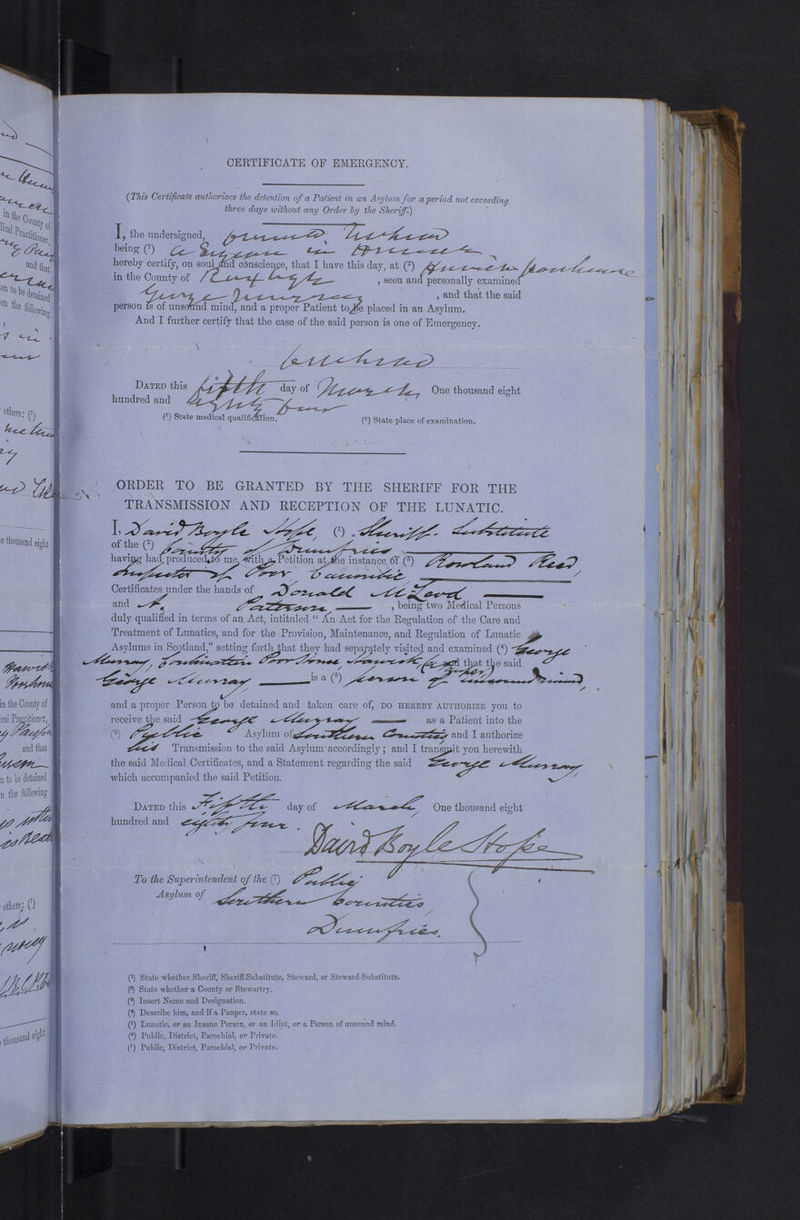 CERTIFICATE OF EMERGENCY.
(This Certificate authorizes the detention of a Patient in an Asylum for a period not exceeding
three days without any Order by the Sheriff.)
I, the undersigned,
being (1) a Surgeon in
hereby certify, on soul and conscience, that I have this day, at (2) Hawick Poorhouse
in the County of Roxburgh , seen and personally examined
George Murray , and that the said
person is of unsound mind, and a proper Patient to be placed in an Asylum.
And I further certify that the case of the said person is one of Emergency.
DATED this fifth day of March One thousand eight
hundred and eighty four
(1) State medical qualification. (2) State place of examination.
ORDER TO BE GRANTED BY THE SHERIFF FOR THE
TRANSMISSION AND RECEPTION OF THE LUNATIC.
I, David Boyle Hope, (1) Sheriff-Substitute
of the (2) County of Dumfries
having had produced to me, with a Petition at the instance of (3) Rowland Read,
Inspector of Poor,
Certificates under the hands of Donald McLeod
and A. Paterson, , being two Medical Persons
duly qualified in terms of an Act, intituled “ An Act for the Regulation of the Care and
Treatment of Lunatics, and for the Provision, Maintenance, and Regulation of Lunatic
Asylums in Scotland,” setting forth that they had separately visited and examined (4) George
Murray, Combination Poor House, Hawick, (a and that the said
George Murray is a (5) person of unsound mind,
and a proper Person to be detained and taken care of, DO HEREBY AUTHORIZE you to
receive the said George Murray as a Patient into the
(6) Public Asylum of Southern Counties and I authorize
his Transmission to the said Asylum accordingly ; and I transmit you herewith
the said Medical Certificates, and a Statement regarding the said George Murray,
which accompanied the said Petition.
DATED this Fifth day of March, One thousand eight
hundred and eighty four.
David Boyle Hope
To the Superintendent of the (7) Public
Asylum of Southern Counties
Dumfries.
(1) State whether Sheriff, Sheriff-Substitute, Steward, or Steward-Substitute.
(2) State whether a County or Stewartry.
(3) Insert Name and Designation.
(4) Describe him, and if a Pauper, state so.
(5) Lunatic, or an Insane Person, or an Idiot, or a Person of unsound mind.
(6) Public, District, Parochial, or Private.
(7) Public, District, Parochial, or Private.
in the County of
and that
on to be detained
on the following
others: (1)
e thousand eight
Hawick
in the County of
and that
n to be detained
n the following
others: (1)
thousand eight